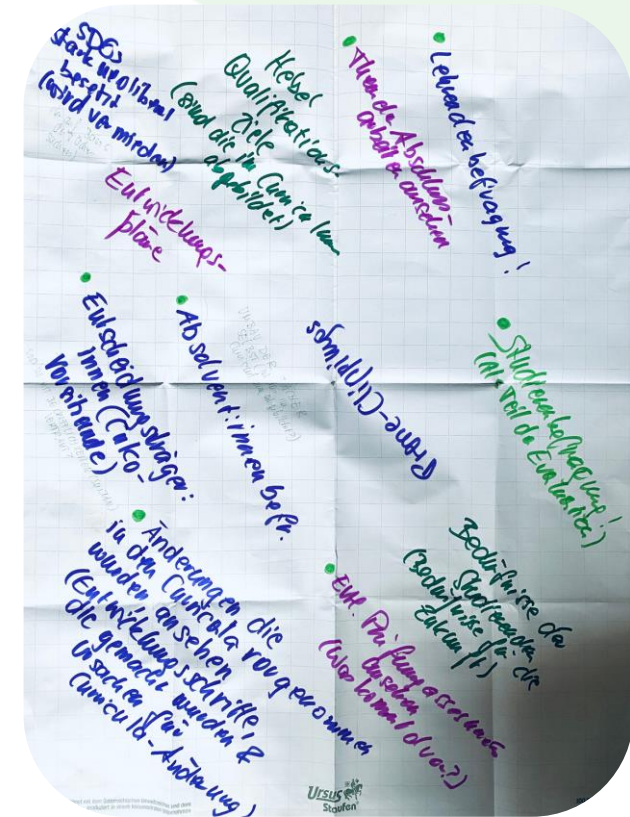 SDGs
stark neoliberal
besetzt
(wird vermieden)
Hebel
Qualifikations-
Ziele
(sind die im Curriculum
abgebildet)
Entwicklungs-
pläne
Themen der Abschluss-
arbeiten ansehen
Lehrendenbefragung!
Entscheidungsträger:
innen (CuKo-
Vorsitzende)
Absolvent:innenbefr.
Studierendenbefragung!
(als Teil der Evaluation)
Änderungen die
in den Curricula vorgenommen
wurden ansehen
(Entwicklungsschritte,
die gemacht wurden &
Ursachen für
Curricula-Änderung)
Evtl. Prüfungs
ansehen
(Was kommt dran?)
Bedürfnisse der
Studierenden
(Bedürfnisse für die
Zukunft)
Ursus
Staufen